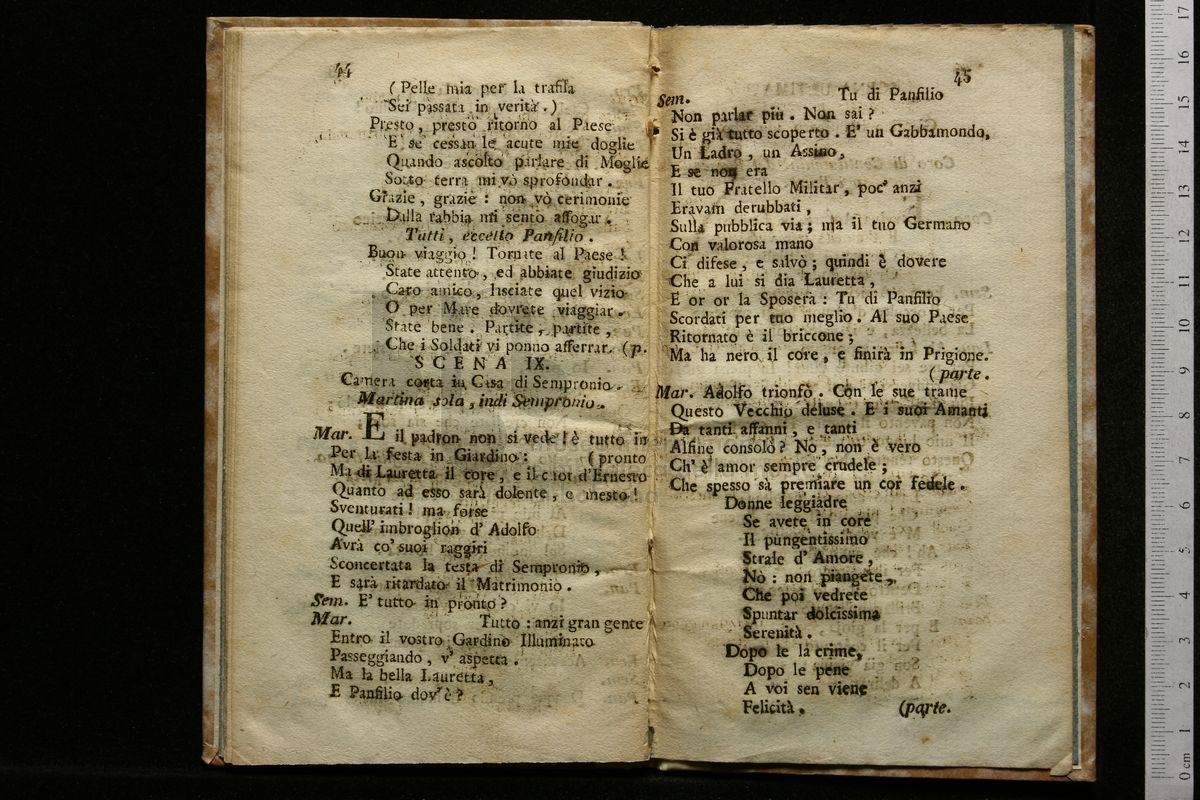 44
( Pelle mia per la trafila
Sei passata in verità . )
Presto , presto ritorno al Paese
E se cessan le acute mie doglie
Quando ascolto parlare di Moglie
Sotto terra mi vò sprofondar .
Grazie , grazie : non vò cerimonie
Dalla rabbia mi sento affogar .
Tutti , eccetto Panfilio .
Buon viaggio ! Tornate al Paese !
State attento , ed abbiate giudizio
Caro amico , lasciate quel vizio
O per Mare dovrete viaggiar .
State bene . Partite , partite ,
Che i Soldati vi ponno afferrar. (p.
SCENA IX.
Camera corta in Casa di Sempronio .
Martina sola , indi Sempronio .
Mar. E il padron non si vede ! è tutto in
Per la festa in Giardino : ( pronto
Ma di Lauretta il core , e il cor d'Ernesto
Quanto ad esso sarà dolente , e mesto !
Sventurati ! ma forse
Quell' imbroglion d' Adolfo
Avrà co' suoi raggiri
Sconcertata la testa di Sempronio ,
E sarà ritardato il Matrimonio .
Sem. E' tutto in pronto ?
Mar. Tutto : anzi gran gente
Entro il vostro Gardino Illuminato
Passeggiando , v' aspetta .
Ma la bella Lauretta ,
E Panfilio dov' è ?
45
Sem. Tu di Panfilio
Non parlar più . Non sai ?
Si è già tutto scoperto . E' un Gabbamondo,
Un Ladro , un Assino ,
E se non era
Il tuo Fratello Militar , poc' anzi
Eravam derubbati ,
Sulla pubblica via ; ma il tuo Germano
Con valorosa mano
Ci difese , e salvò ; quindi è dovere
Che a lui si dia Lauretta ,
E or or la Sposerà : Tu di Panfilio
Scordati per tuo meglio . Al suo Paese
Ritornato è il briccone ;
Ma ha nero il core , e finirà in Prigione.
( parte .
Mar. Adolfo trionfò . Con le sue trame
Questo Vecchio deluse . E i suoi Amanti
Da tanti affanni , e tanti
Alfine consolò ? Nò , non è vero
Ch' è amor sempre crudele ;
Che spesso sà premiare un cor fedele .
Donne leggiadre
Se avete in core
Il pungentissimo
Strale d' Amore ,
Nò : non piangete ,
Che poi vedrete
Spuntar dolcissima
Serenità .
Dopo le la crime,
Dopo le pene
A voi sen viene
Felicità . (parte.
0 cm 1 2 3 4 5 6 7 8 9 10 11 12 13 14 15 16 17